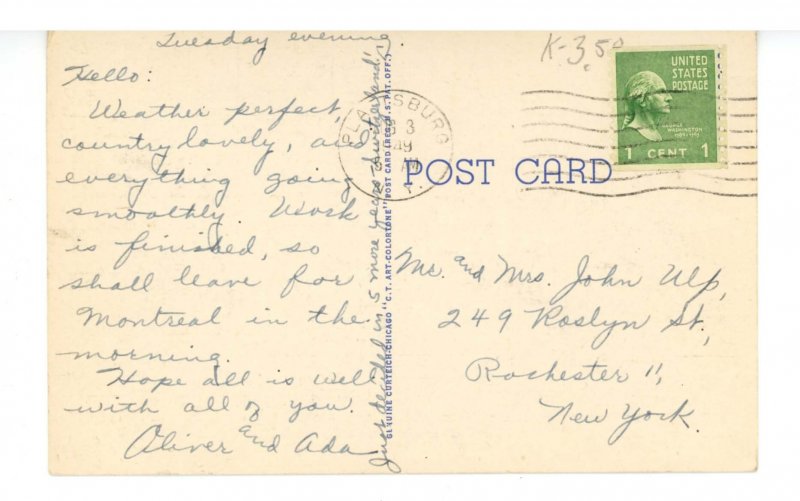 Tuesday evening
Hello:
Weather perfect,
country lovely, and
everything going
smoothly. Work
is finished, so
shall leave for
Montreal in the
morning.
Hope all is well
with all of you.
Oliver and Ada
Just decided in 5 more years Switzerland,
GENUINE CURTEICH-CHICAGO "C.T. ART-COLORTONE" POST CARD (REG. U.S. PAT. OFF.)
K-3.50
PLATTSBURG
3
49
UNITED
STATES
POSTAGE
GEORGE
WASHINGTON
1789-1797
1 CENT 1
POST CARD
Mr. and Mrs. John Ulp,
249 Roslyn St,
Rochester 11,
New York.